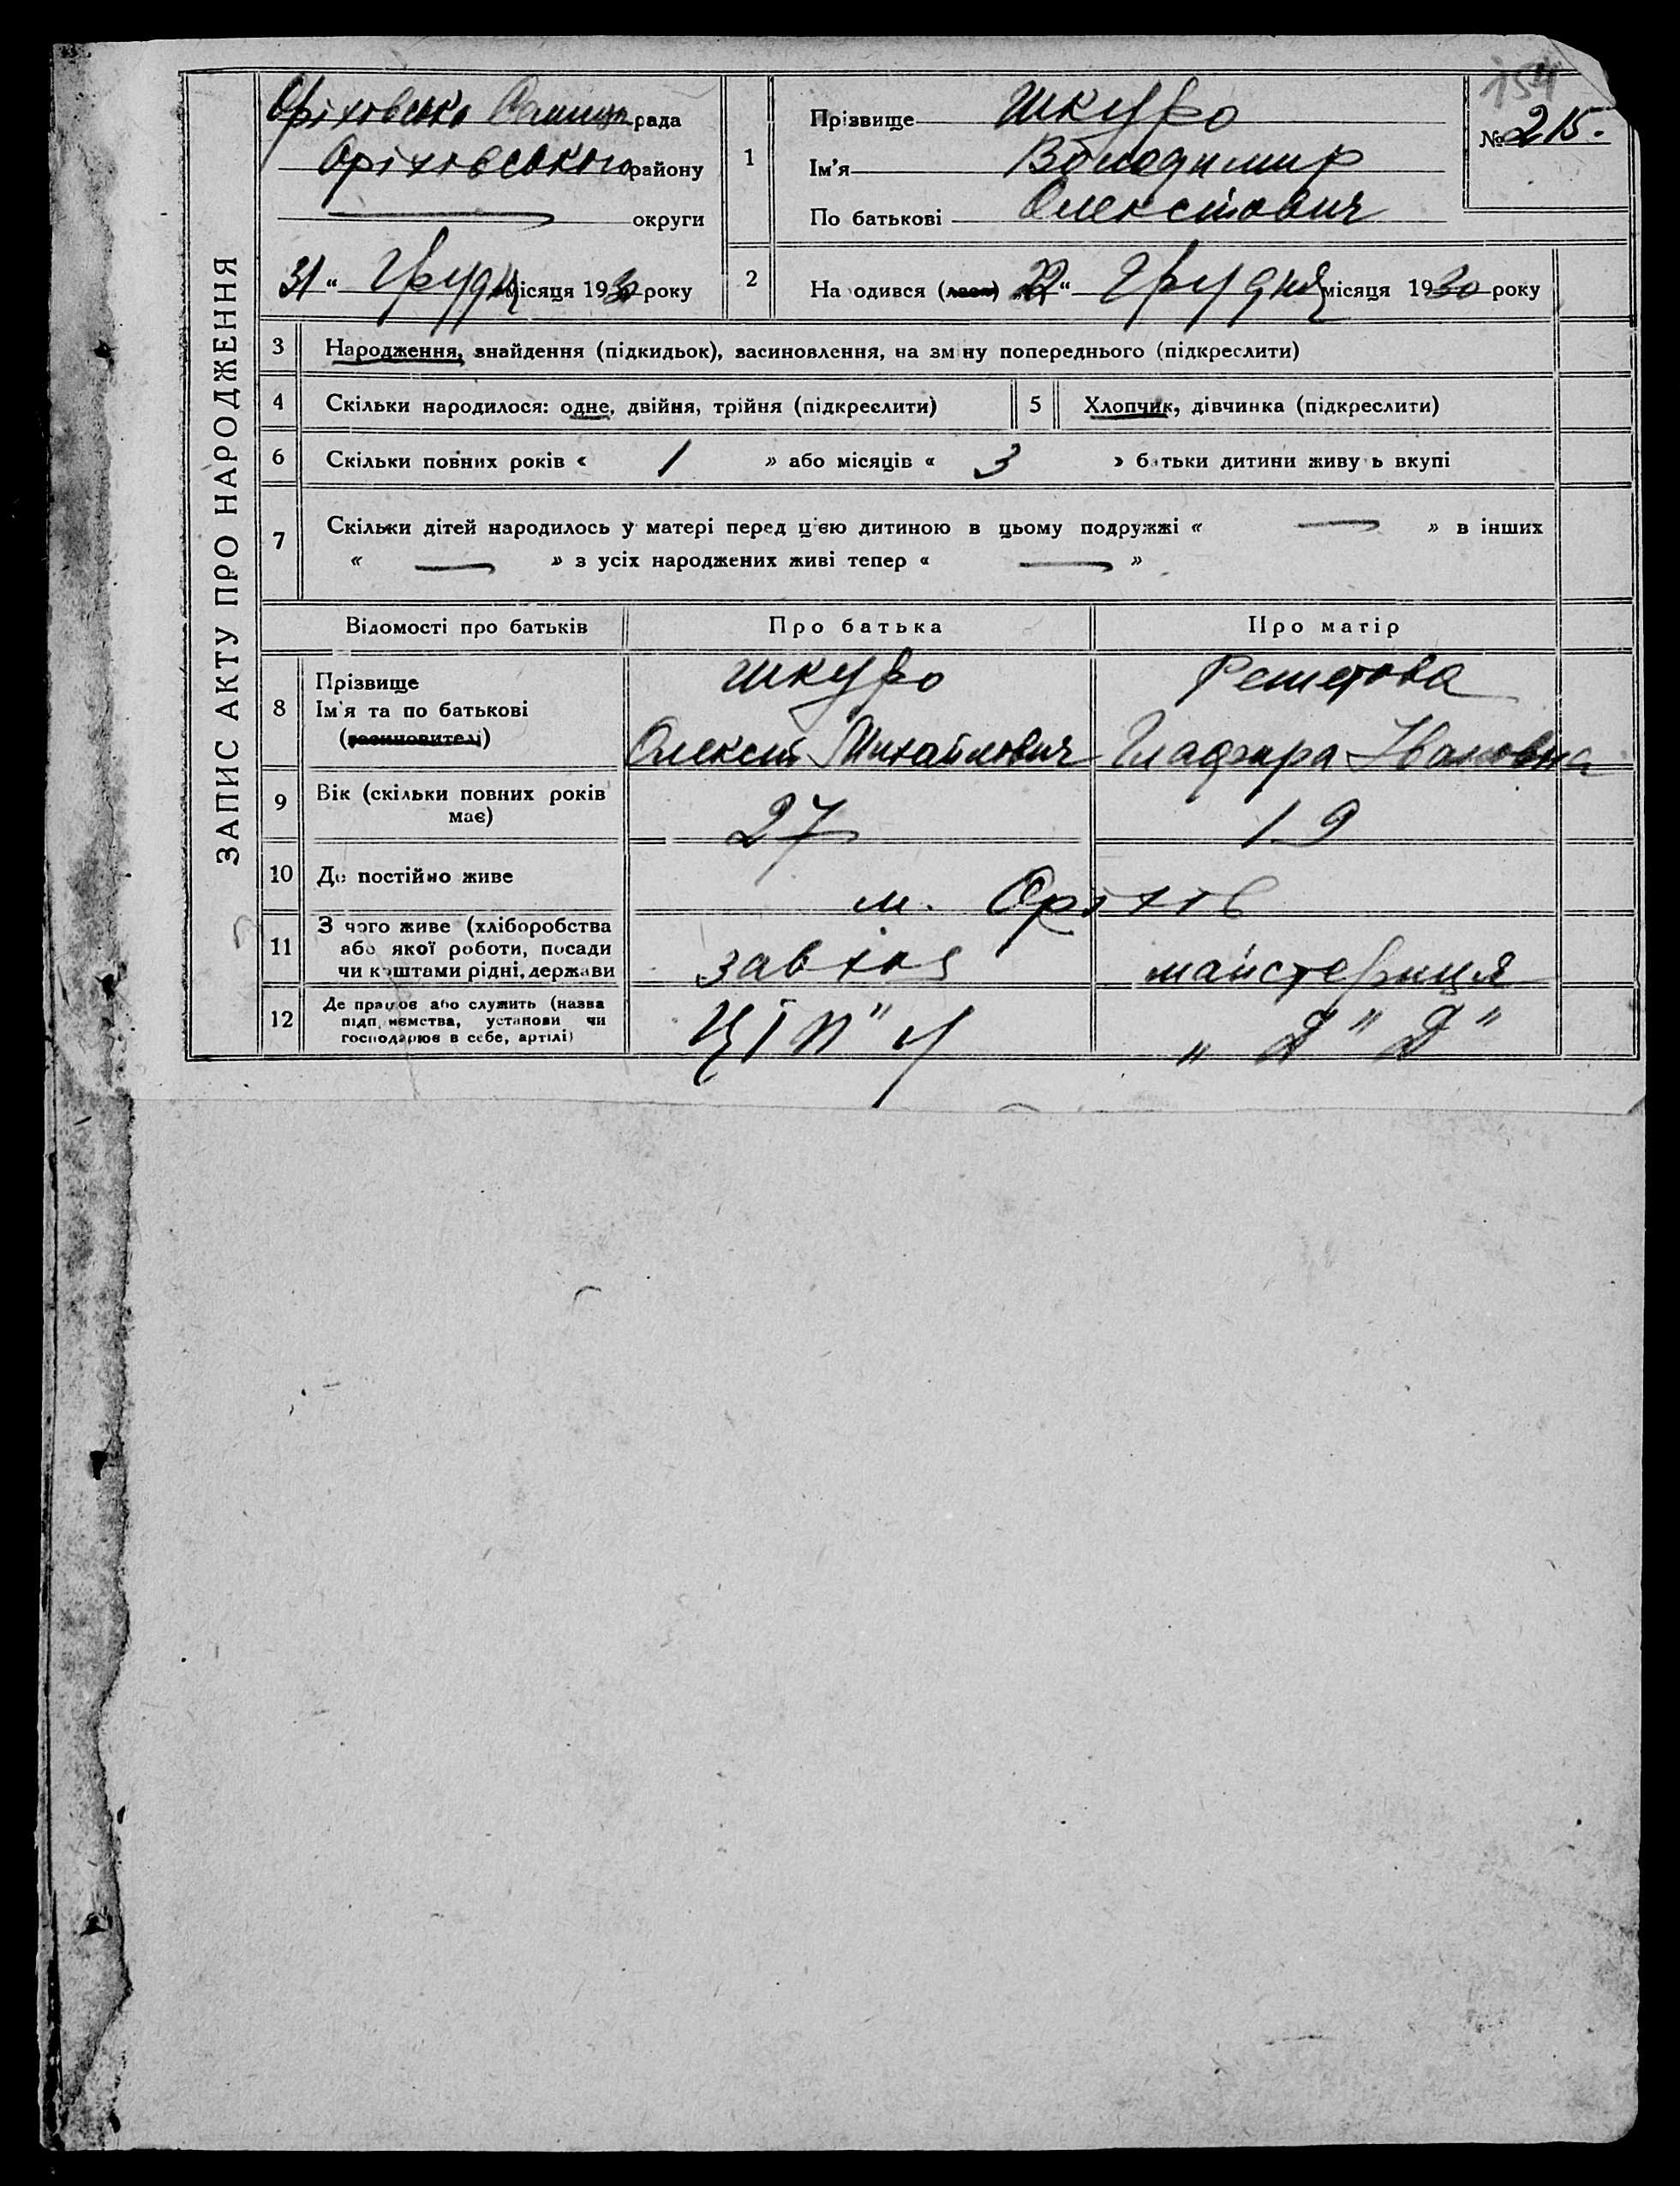 ЗАПИС АКТУ ПРО НАРОДЖЕННЯ
154
№ 215.
Оріховсько Селищн рада
Оріховського району
округи
31 “ Грудня місяця 1930 року
1 Прізвище Шкуро
Ім’я Володимир
По батькові Олексійович
2 На одився 22 “ Грудня місяця 1930 року
3 Народження, знайдення (підкидьок), засиновлення, на зм ну попереднього (підкреслити)
4 Скільки народилося: одне, двійня, трійня (підкреслити) 5 Хлопчик, дівчинка (підкреслити)
6 Скільки повних років « 1 » або місяців « 3 » батьки дитини живу ь вкупі
7 Скільки дітей народилось у матері перед цією дитиною в цьому подружжі « — » в інших
« — » з усіх народжених живі тепер « — »
Відомості про батьків Про батька Про матір
8 Прізвище Шкуро Решетова
Ім’я та по батькові
(засиновителі) Олексій Михайлович Глафира Івановна
9 Вік (скільки повних років
має) 27 19
10 Де постійно живе м. Оріхів
11 З чого живе (хліборобства
або якої роботи, посади
чи коштами рідні, держави завхоз майстериця
12 Де працює або служить (назва
підп иємства, установи чи
господарює в себе, артілі) „ Д " Д "